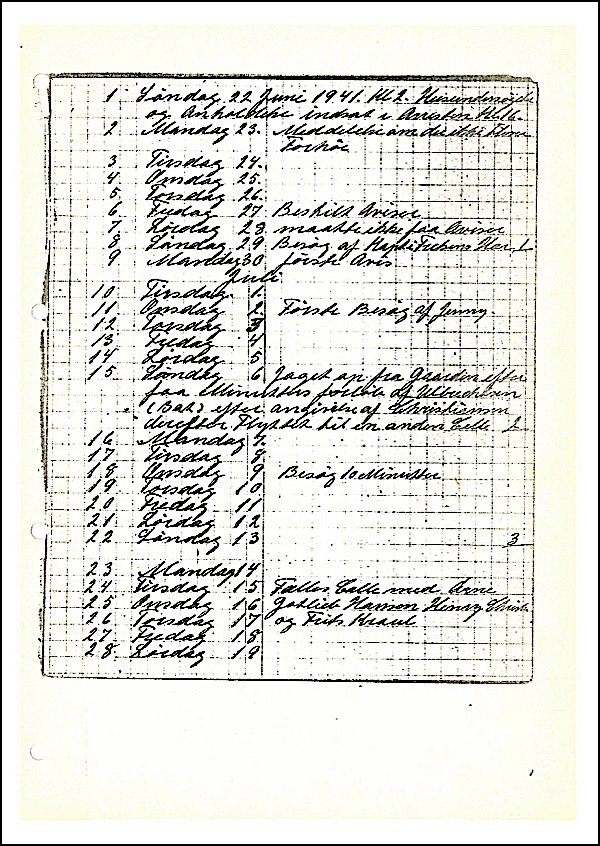 1 Søndag 22 Juni 1941. Kl 2. Husundersøgelse
og Anholdelse indsat i Arresten Kl 16.
2 Mandag 23. Meddelelse om
Forhør
3 Tirsdag 24.
4 Onsdag 25.
5. Torsdag 26.
6 Fredag 27 Bestilt Aviser
7 Lørdag 28 maatte ikke faa Aviser
8 Søndag 29 Besøg af 1
9 Mandag 30 første Avis
Juli
10 Tirsdag 1.
11 Onsdag 2 Første Besøg af Jenny.
12 Torsdag 3
13 Fredag 4
14 Lørdag 5
15 Søndag 6 Jaget op fra Gaarden efter
faa Minutters forløb af
(Bat.) efter angivelse af Christiansen
derefter Flyttet til en anden Celle 2
16 Mandag 7.
17 Tirsdag 8
18 Onsdag 9 Besøg 10 Minutter
19 Torsdag 10
20 Fredag 11
21 Lørdag 12
22 Søndag 13 3
23 Mandag 14
24 Tirsdag 15 Fælles Celle med Arne
25 Onsdag 16 Gotlieb Hansen Henry
26 Torsdag 17 og Frits Kraul
27 Fredag 18
28 Lørdag 19